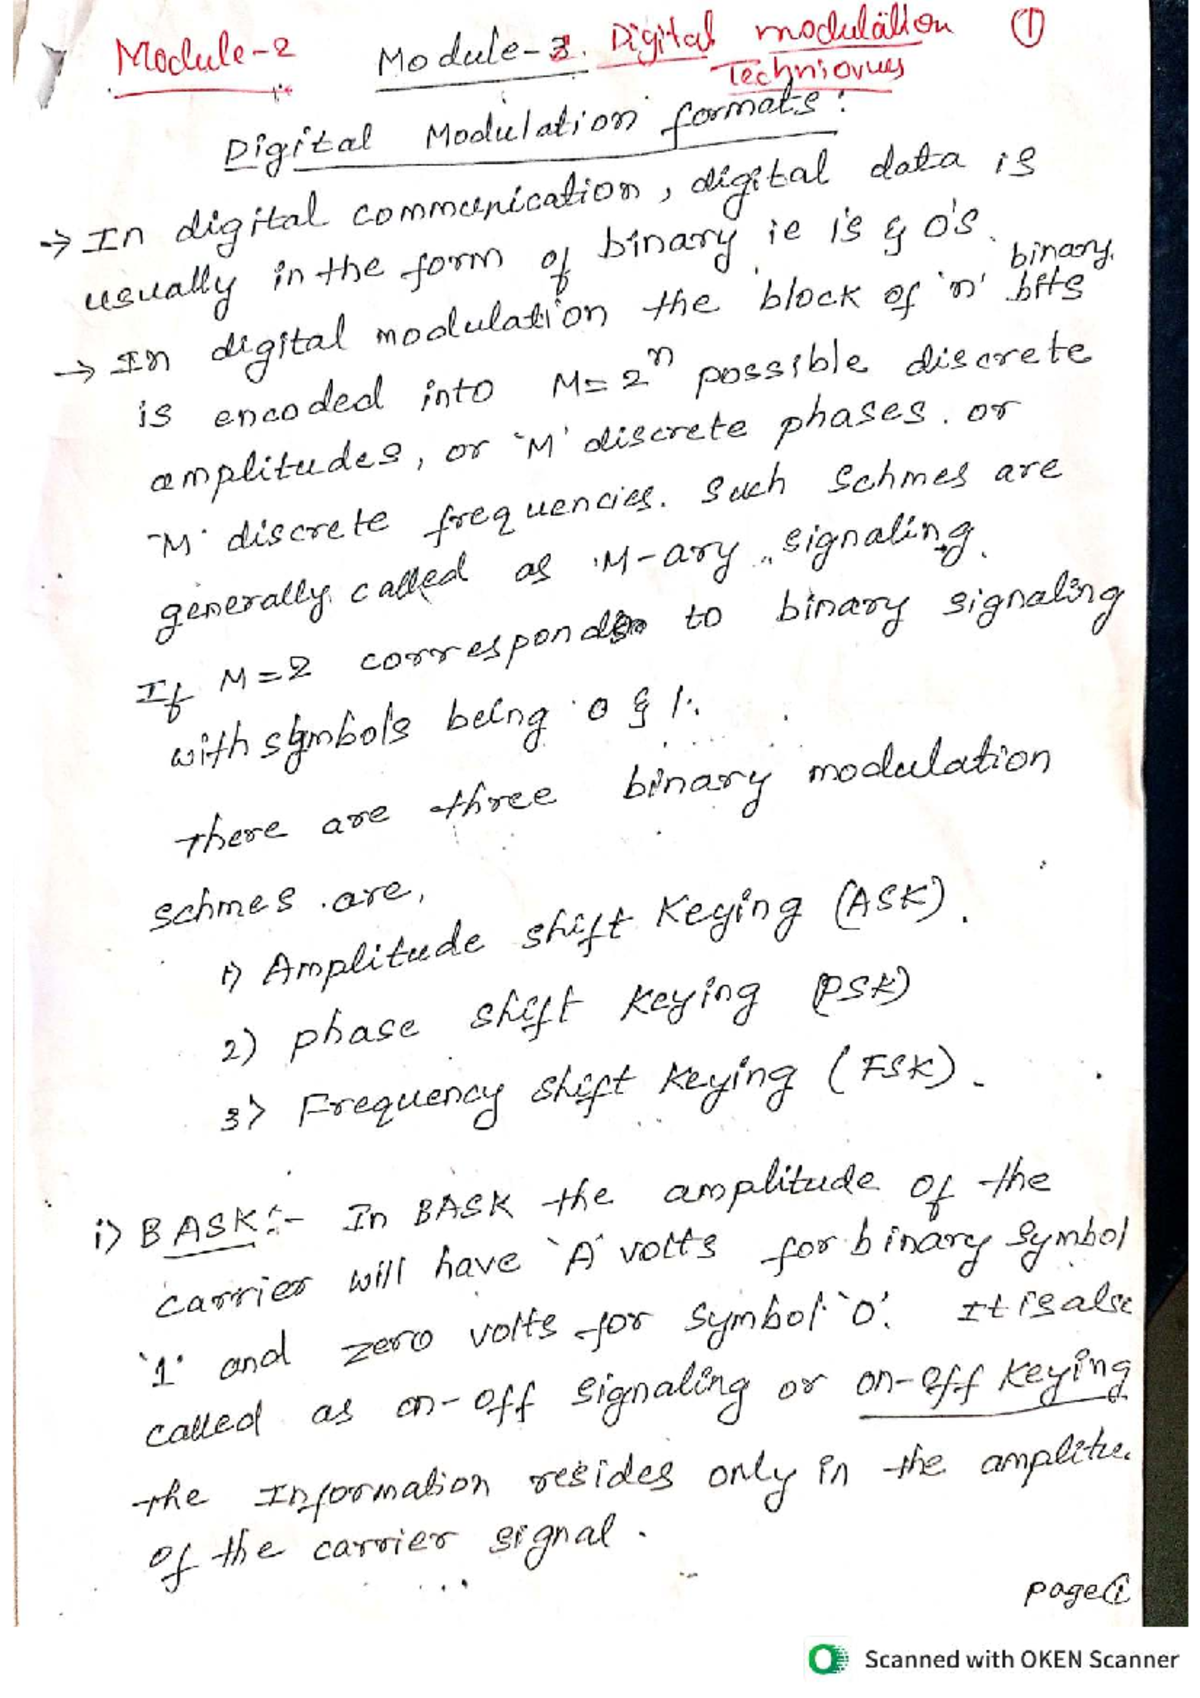 Module-2 Module-3. Digital modulation ①
Techniques
Digital Modulation formats:
→ In digital communication, digital data is
usually in the form of binary ie 1's & 0's.
→ In digital modulation the block of 'n' binary bits
is encoded into M=2ⁿ possible discrete
amplitudes, or 'M' discrete phases. or
'M' discrete frequencies. Such Schmes are
generally called as 'M-ary signaling.
If M=2 corresponds to binary signaling
with symbols being 0 & 1.
There are three binary modulation
schmes are,
1) Amplitude shift Keying (ASK).
2) phase shift Keying (PSK)
3) Frequency shift Keying (FSK).
i) BASK:- In BASK the amplitude of the
carrier will have 'A' volts for binary symbol
'1' and zero volts for symbol '0'. It is also
called as on-off signaling or on-off keying
the Information resides only in the amplitu
of the carrier signal.
page ①
Scanned with OKEN Scanner